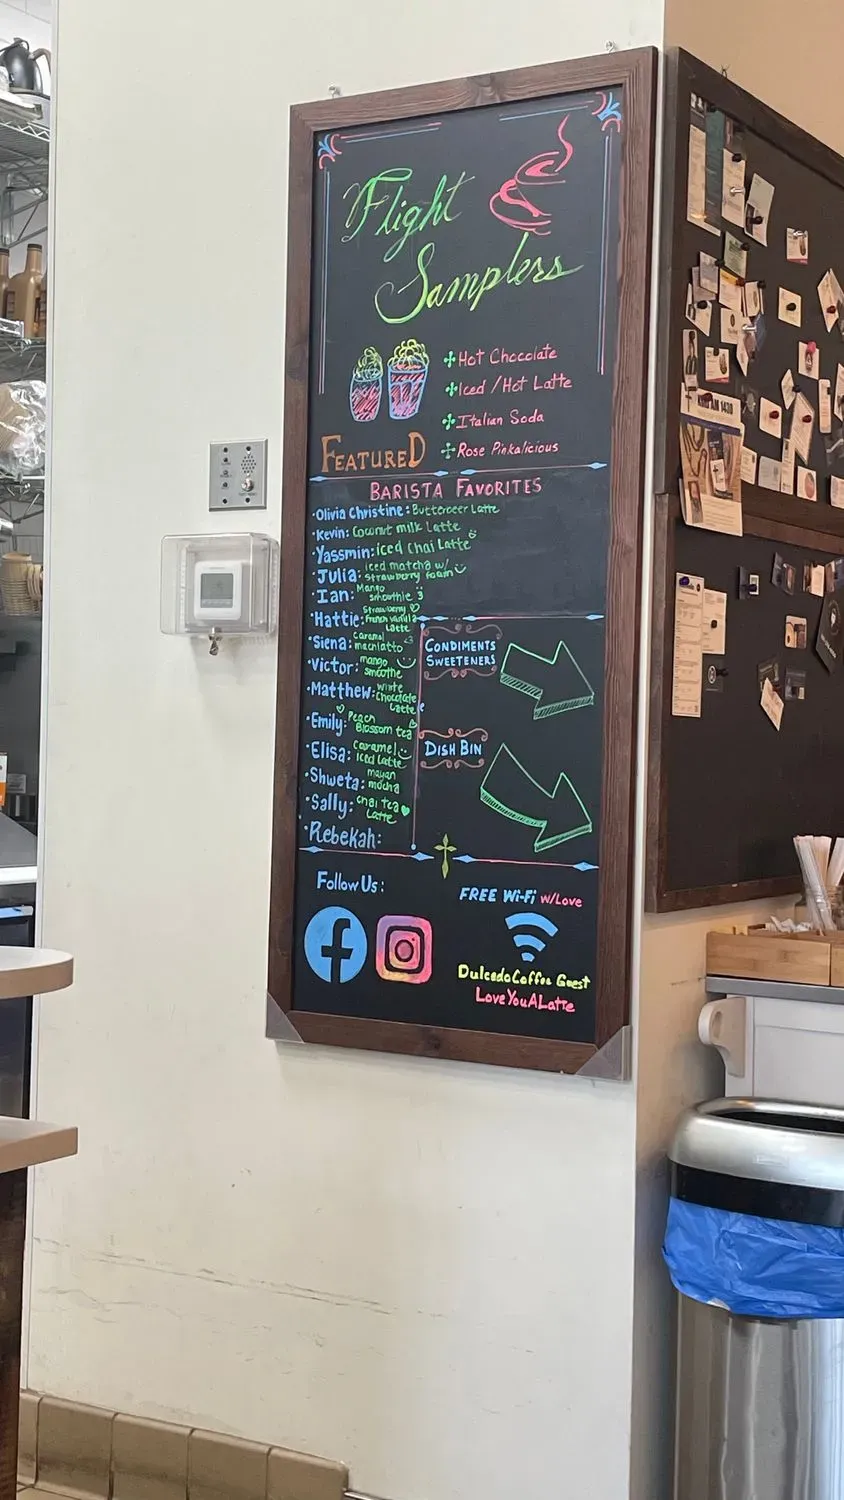 Flight
Samplers
Hot Chocolate
Iced / Hot Latte
Italian Soda
Rose Pinkalicious
FEATURED
BARISTA FAVORITES
·Olivia Christine: Butterbeer Latte
·Kevin: Coconut milk Latte
·Yassmin: iced chai Latte
·Julia: iced matcha w/
strawberry foam
·Ian: Mango
smoothie :)
·Hattie: Strawberry
French vanilla
Latte
·Siena: Caramel
macchiatto
·Victor: mango
smoothe
·Matthew: white
Chocolate
Latte
·Emily: Peach
Blossom tea
·Elisa: Caramel
iced Latte
·Shweta: mayan
mocha
·Sally: chai tea
Latte
·Rebekah:
CONDIMENTS
SWEETENERS
DISH BIN
Follow Us:
FREE Wi-Fi w/Love
DulcedoCoffee Guest
LoveYouALatte